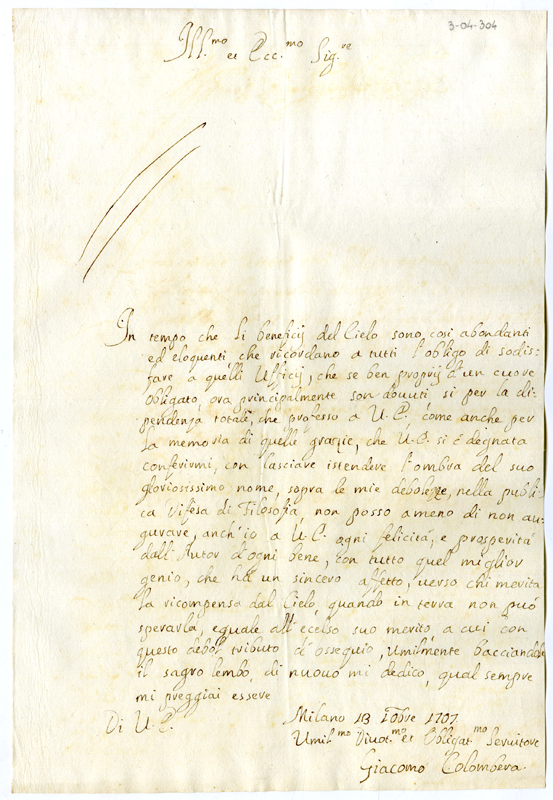 3-04-304
Ill.mo et Ecc.mo Sig.re
In tempo che li beneficij del Cielo sono così abondanti
ed eloquenti che ricordano a tutti l'obligo di sodis-
fare a quelli Ufficij, che se ben proprij d'un cuore
obligato, ora principalmente son douuti sì per la di-
pendenza totale, che professo a U.E., come anche per
la memoria di quelle grazie, che U.E. si è degnata
conferirmi, con lasciare istendere l'ombra del suo
gloriosissimo nome, sopra le mie debolezze, nella publi-
ca difesa di Filosofia non posso a meno di non au-
gurare, anch'io a U.E. ogni felicità, e prosperità
dall'Autor d'ogni bene, con tutto quel miglior
genio, che hà un sincero affetto, uerso chi merita
la ricompensa dal Cielo, quando in terra non può
sperarla, eguale all'ecelso suo merito, a cui con
questo debol tributo d'ossequio, umilmente bacciandole
il sagro lembo, di nuouo mi dedico, qual sempre
mi preggiai essere
Di U.E. Milano 18 Xbre 1707.
Umil.mo Diuot.mo et Obligat.mo Seruitore
Giacomo Colombera.